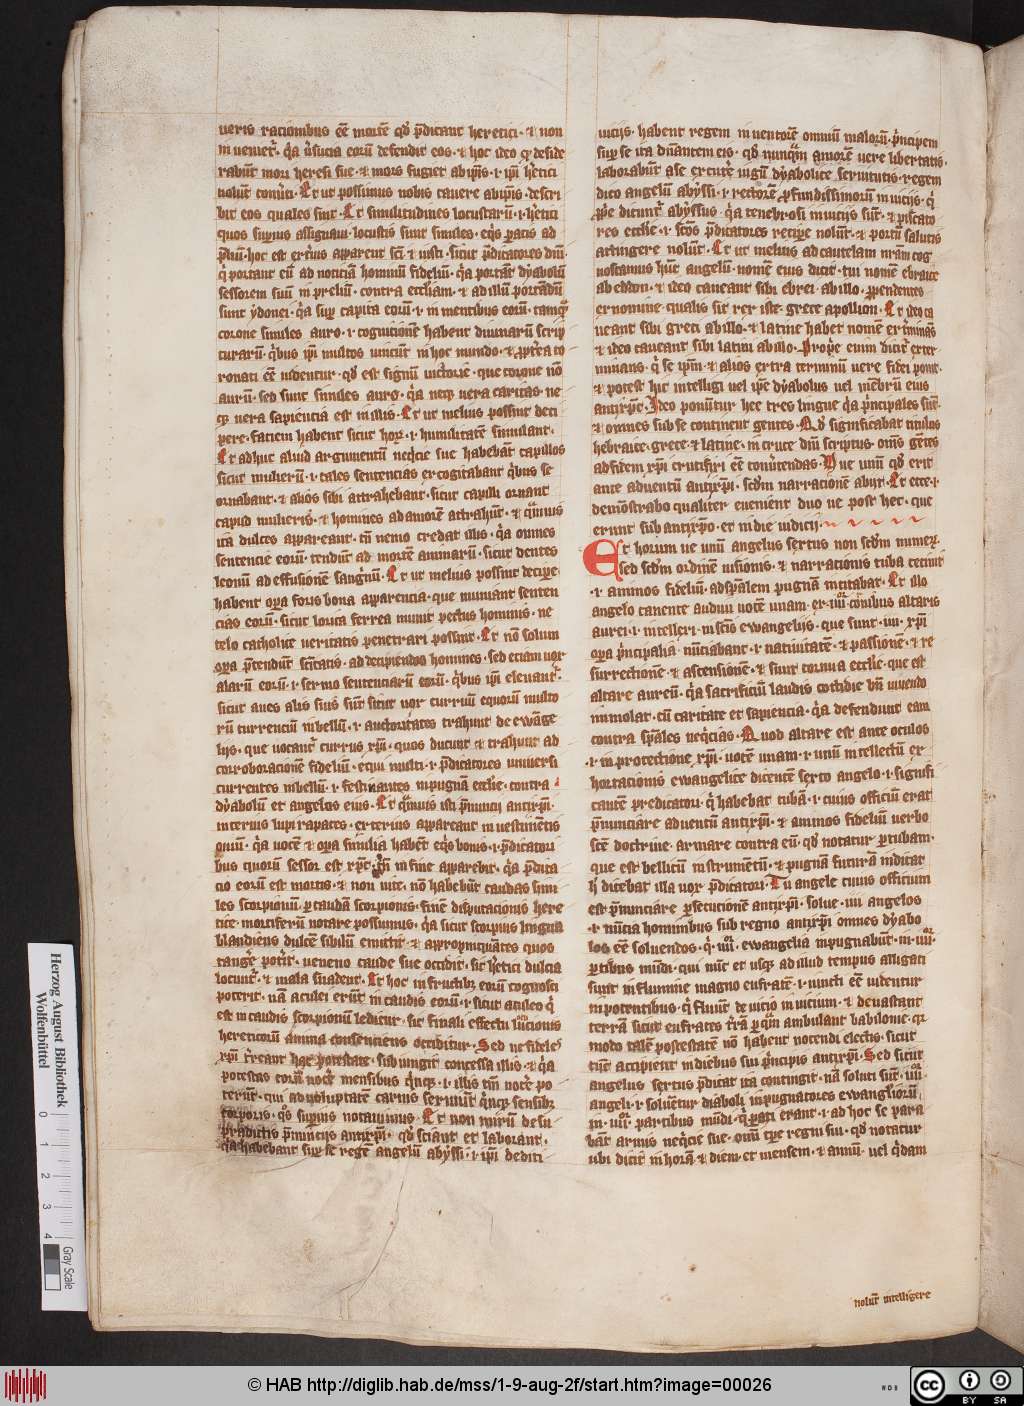 ueris racionibus eē mortē qd' p̄dicant heretici · ⁊ non
inueniēt · q̓a ūsucia eorū defendit eos · ⁊ hoc ideo q̓ deside
rabūt mori heresi sue · ⁊ mors fugiet ab ip̄is · ı ip̄i h̓etici
nolūt conūti · Et ut possimus nobis cauere ab ip̄is · descri
bit eos quales sint · Et similitudines locustarū · ı h̓etici
quos superius assignaui · locustis sunt similes · eq̓s paratis ad
p̄liū · hoc est ext̓ius apparent sc̄i ⁊ iusti · sicut p̄dicatores dn̄i
q̓ portant eū ad noticiā hominū fideliū · q̓a portāt dyabolū
sessorem suū in p̄liū · contra eccl̓iam · ⁊ ad illū portandū
sunt ydonei · q̓a sup̱ capita eorū · ı in mentibus eorū · tamq̓
corone similes auro · ı cognitionē habent diuinarū scrip
turarū · q̓bus ip̄i multos uincūt in hoc mundo · ⁊ p̱pt̓ea co
ronati eē uidentur · qd' est signū uict̓orie · que corone nō
aurū · sed sunt similes auro · q̓a neq̓ uera caritas · ne
q̓ uera sapiencia est in illis · Et ut melius possint deci
pere · faciem habent sicut hoīz · ı humilitatē simulant ·
Et adhuc aliud argumentū neq̓cie sue habebāt capillos
sicut mulierū · ı tales sentencias excogitabant q̓bus se
ornabant · ⁊ alios sibi attrahebant · sicut capilli ornant
capud mulieris · ⁊ homines ad amorē attrahūt · ⁊ q̓muis
ita dulces appareant · tn̄ nemo credat illis · q̓a omnes
sentencie eorū · tendūt ad mortē animarū · sicut dentes
leonū ad effusionē sanguinū · Et ut melius possint decip̱e
habent op̱a foris bona apparencia · que muniant senten
cias eorū · sicut lorica ferrea munit pectus hominis · ne
telo catholice ueritatis penetrari possint · Et nō solum
op̱a p̄tendūt sc̄itatis · ad decipiendos homines · sed eciam uox
alarū eorū · ı sermo sentenciarū eorū · q̓bus ip̄i eleuant̓ ·
sicut aues alis suis sūt sicut uox curruū equorū multo
rū currenciū in bellū · ı auctoritates trahunt de ewāge
liis · que uocant̓ currus xp̄i · quos ducunt ⁊ trahunt ad
corroboracionē fideliū · equi multi · ı p̄dicatores uniuersi
currentes in bellū · ı festinantes in pugnā eccl̓ie · contra
dyabolū et angelos eius · Et q̓muis isti p̄nuncij antixp̄i ·
interius lupi rapaces · exterius appareant in uestimētis
ouiū · q̓a uocē ⁊ op̱a similia habēt eq̓s bonis · ı p̄dicatori
bus quorū sessor est xp̄c · tn̄ in fine apparebit · q̓a p̄dica
cio eorū est mortis · ⁊ non uite · nō habebūt caudas simi
les scorpionū · p̱ caudā scorpionis · finē disputacionis here
tice · mortiferū notare possumus · q̓a sicut scorpius lingua
blandiens dulcē sibilū emittit · ⁊ appropinquātes quos
tang̓e pot̓it · ueneno caude sue occidit · sic h̓etici dulcia
locunt̓ · ⁊ mala suadent · Et hoc in fructibz eorū cognosci
poterit · nā aculei erūt in caudis eorū · ı sicut aculeo q̓
est in caudis scorpionū leditur · sic finali effectu locucionis
hereticorū anima consenciens occiditur · Sed ne fideles
xp̄i t̓reant hac potestate · subiungit concessa illis · ⁊ q̓a
potestas eorū noc̓e mensibus q̓nq̓ · ı illis tm̄ noc̓e po
terūt · qui ad uoluptatē carnis seruiūt q̓nq̓ sensibz
corporis · q̓s superius notauimus · Et non mirū de su
pradictis p̄nuncijs antixp̄i · qd' sciant et laborant ·
q̓a habebant sup̱ se regē angelū abyssi · ı ip̄i dediti
uicijs · habent regem inuentorē omniū malorū · p̄ncipem
sup̱ se ita dn̄antem eis · qd' nunq̓ amore uere libertatis
laborabūt a se excut̓e iugū dyabolice seruitutis · regem
dico angelū abyssi · ı rectorē profundissimorū in uicijs · q̓
p̱pe dicunt̓ abyssus · q̓a tenebrosi in uicijs sūt · ⁊ piscato
res eccl̓ie · ı sc̄os p̄dicatores recip̱e nolūt · ⁊ portū salutis
attingere nolūt · Et ut melius ad cautelam nr̄am cog
noscamus hūc angelū · nomē eius dicit · cui nomē ebraice
ab eddon · ⁊ ideo caueant sibi ebrei ab illo · p̱pendentes
ex nomine · qualis sit rex iste · grece apollion · Et ideo ca
ueant sibi greci ab illo · ⁊ latine habet nomē ext̓minās
⁊ ideo caueant sibi latini ab illo · Prop̱e enim dicit̓ exter
minans · q̓ se ip̄m ⁊ alios extra terminū uere fidei ponit ·
⁊ potest hic intelligi uel ip̄e dyabolus uel mēbrū eius
antixp̄c · Ideo ponūtur hee tres lingue q̓a p̄ncipales sūt ·
⁊ omnes sub se continent gentes · Qd' significabat titulus
hebraice · grece ⁊ latine · in cruce dn̄i scriptus · om̄s gētes
ad fidem xp̄i crucifixi eē conūtendas · Ue unū qd' erit
ante aduentū antixp̄i · scdm narracionē abijt · Et ecce · ı
demōstrabo qualiter eueniēnt duo ue post hec · que
erunt sub antixp̄o · et in die iudicij ·
Et horum ue unū angelus sextus non scdm numer̄ ·
sed scdm ordinē uisionis · ⁊ narracionis tuba cecinit
· ı animos fideliū · ad sp̄alem pugnā incitabat · Et illo
angelo canente audiui uocē unam · ex · iiii · cornibus altaris
aurei · ı intellexi in sc̄is ewangelijs · que sunt · iiii · xp̄i
op̱a p̄ncipalia nūciabant · ı natiuitatē · ⁊ passionē · ⁊ re
surrectionē · ⁊ ascensionē · ⁊ sunt cornua eccl̓ie · que est
altare aureū · q̓a sacrificiū laudis cottidie bn̄ uiuendo
immolat · cū caritate et sapiencia · q̓a defendunt eam
contra sp̄ales neq̓cias · Quod altare est ante oculos
· ı in protectione xp̄i · uocē unam · ı unū intellectū ex
hortacionis ewangelice dicentē sexto angelo · ı signifi
cantē predicatori · q̓ habebat tubā · ı cuius officiū erat
p̄nunciare aduentū antixp̄i · ⁊ animos fideliū uerbo
sc̄e doctrine armare contra eū · qd' notatur p̱ tubam ·
que est bellicū instrumētū · ⁊ pugnā futurā indicat
h̄ dicebat illa uox p̄dicatori · Tu angele cuius officium
est p̄nunciare p̱secutionē antixp̄i · solue · iiii · angelos
· ı nūcia hominibus sub regno antixp̄i omnes dyabo
los eē soluendos · q̓ · iiii · ewangelia inpugnabūt · in · iiii ·
p̱tibus mūdi · qui nūc et usq̓ ad illud tempus alligati
sunt in flumine magno eufratē · ı uincti eē uidentur
in potentibus · q̓ fluūt de uicio in uicium · ⁊ deuastant
terrā sicut eufrates t̓rā p̱ q̓m ambulant babilonie · q̓
modo talē potestatē nō habent nocendi electis · sicut
tūc accipient in diebus sui p̄ncipis antixp̄i · Sed sicut
angelus sextus p̄dicat ita contingit · nā soluti sūt · iiii ·
angeli · ı soluentur diaboli inpugnatores ewangeliorū ·
in · iiii · partibus mūdi · q̓ pati erant · ı ad hoc se para
bāt armis neq̓cie sue · om̄i tp̱e regni sui · qd' notatur
ubi dicit in horā ⁊ diem · et mensem · ⁊ annū · uel q̓dam
nolūt intelligere
Herzog August Bibliothek
Wolfenbüttel
0 1 2 3 4
Gray Scale
© HAB http://diglib.hab.de/mss/1-9-aug-2f/start.htm?image=00026
WDB
cc BY SA